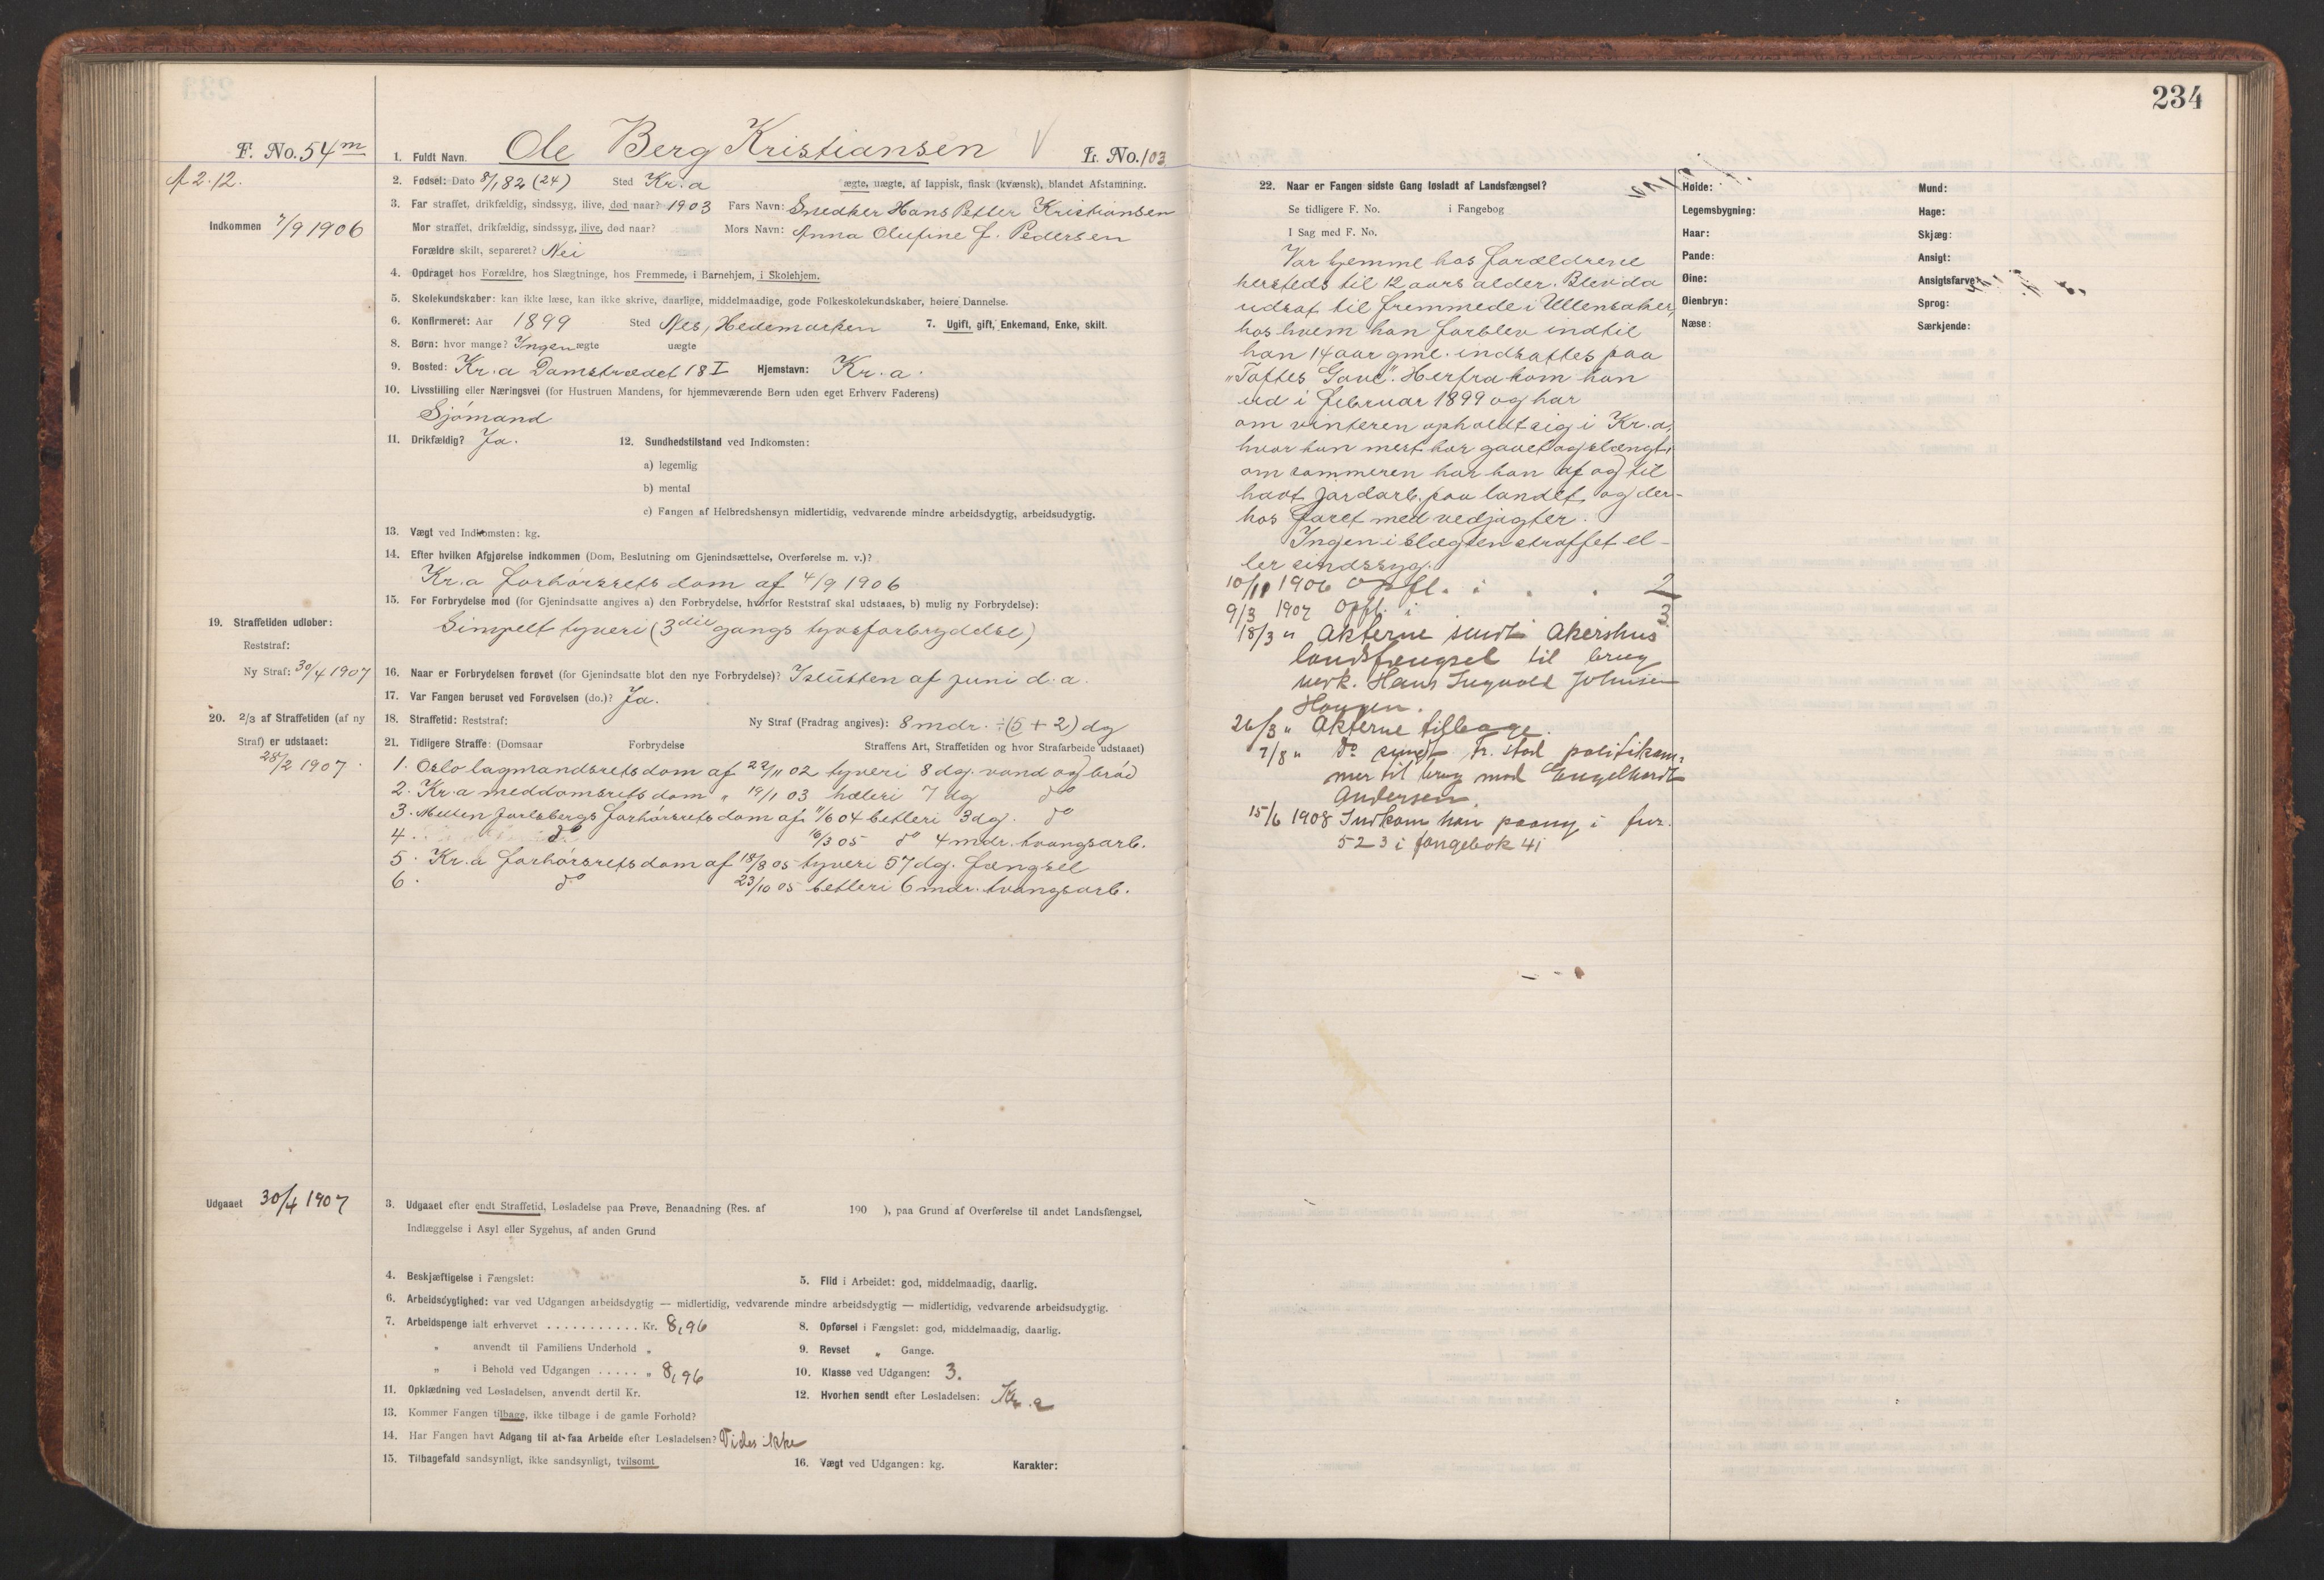 234
F. No. 54 m
A 2. 12.
Indkommen 7/9 1906
1. Fuldt Navn. Ole Berg Kristiansen V L. No. 103
2. Fødsel: Dato 8/1 82 (24) Sted Kr.a ægte, uægte, af lappisk, finsk (kvænsk), blandet Afstamning.
3. Far straffet, drikfældig, sindssyg, ilive, død naar? 1903 Fars Navn: Snedker Hans Petter Kristiansen
Mor straffet, drikfældig, sindssyg, ilive, død naar? Mors Navn: Anna Olufine f. Pedersen
Forældre skilt, separeret? Nei
4. Opdraget hos Forældre, hos Slægtninge, hos Fremmede, i Barnehjem, i Skolehjem.
5. Skolekundskaber: kan ikke læse, kan ikke skrive, daarlige, middelmaadige, gode Folkeskolekundskaber, høiere Dannelse.
6. Konfirmeret: Aar 1899 Sted Nes, Hedemarken 7. Ugift, gift, Enkemand, Enke, skilt.
8. Børn: hvor mange? Ingen ægte uægte
9. Bosted: Kr.a Damstrædet 18 I Hjemstavn: Kr.a.
10. Livsstilling eller Næringsvei (for Hustruen Mandens, for hjemmeværende Børn uden eget Erhverv Faderens)
Sjömand
11. Drikfældig? Ja. 12. Sundhedstilstand ved Indkomsten:
a) legemlig
b) mental
c) Fangen af Helbredshensyn midlertidig, vedvarende mindre arbeidsdygtig, arbeidsudygtig.
13. Vægt ved Indkomsten: kg.
14. Efter hvilken Afgjørelse indkommen (Dom, Beslutning om Gjenindsættelse, Overførelse m. v.)?
Kr.a forhörsrets dom af 4/9 1906
15. For Forbrydelse mod (for Gjenindsatte angives a) den Forbrydelse, hvorfor Reststraf skal udstaaes, b) mulig ny Forbrydelse):
Simpelt tyveri (3die gangs tyvsforbrydelse)
19. Straffetiden udløber:
Reststraf:
Ny Straf: 30/4 1907
16. Naar er Forbrydelsen forøvet (for Gjenindsatte blot den nye Forbrydelse)? I slutten af juni d. a.
17. Var Fangen beruset ved Forøvelsen (do.)? Ja.
20. 2/3 af Straffetiden (af ny
Straf) er udstaaet:
28/2 1907.
18. Straffetid: Reststraf: Ny Straf (Fradrag angives): 8 mdr. ÷ (5 + 2) dg
21. Tidligere Straffe: (Domsaar Forbrydelse Straffens Art, Straffetiden og hvor Strafarbeide udstaaet)
1. Oslo lagmandsrets dom af 22/11 02 tyveri 8 dg. vand og bröd
2. Kr.a meddomsrets dom " 19/1 03 hæleri 7 dg do
3. Mellem Jarlsbergs forhörsrets dom af 11/6 04 betleri 3 dg. do
4. do 16/3 05 do 4 mdr. tvangsarb.
5. Kr.a forhörsrets dom af 18/8 05 tyveri 57 dg. fængsel
6. do 23/10 05 betleri 6 mdr. tvangsarb.
Udgaaet 30/4 1907
3. Udgaaet efter endt Straffetid, Løsladelse paa Prøve, Benaadning (Res. af 190 ), paa Grund af Overførelse til andet Landsfængsel,
Indlæggelse i Asyl eller Sygehus, af anden Grund
4. Beskjæftigelse i Fængslet: 5. Flid i Arbeidet: god, middelmaadig, daarlig.
6. Arbeidsdygtighed: var ved Udgangen arbeidsdygtig — midlertidig, vedvarende mindre arbeidsdygtig — midlertidig, vedvarende arbeidsudygtig.
7. Arbeidspenge ialt erhvervet . . . . . . . . . . . Kr. 8,96 8. Opførsel i Fængslet: god, middelmaadig, daarlig.
" anvendt til Familiens Underhold " 9. Revset " Gange.
" i Behold ved Udgangen . . . . . " 8,96 10. Klasse ved Udgangen: 3.
11. Opklædning ved Løsladelsen, anvendt dertil Kr. 12. Hvorhen sendt efter Løsladelsen: Kr.a
13. Kommer Fangen tilbage, ikke tilbage i de gamle Forhold?
14. Har Fangen havt Adgang til at faa Arbeide efter Løsladelsen? Vides ikke
15. Tilbagefald sandsynligt, ikke sandsynligt, tvilsomt 16. Vægt ved Udgangen: kg. Karakter:
22. Naar er Fangen sidste Gang løsladt af Landsfængsel?
Se tidligere F. No. i Fangebog
I Sag med F. No.
Var hjemme hos forældrene
hersteds til 12 aars alder. Blev da
udsat til fremmede i Ullensaker,
hos hvem han forblev indtil
han 14 aar gml. indsattes paa
"Toftes Gave". Herfra kom han
ud i februar 1899 og har
om vinteren opholdt sig i Kr.a,
hvor han mest har gaaet og slængt;
om sommeren har han af og til
havt jordarb. paa landet og der-
hos faret med vedjagter.
Ingen i slægten straffet el-
ler sindssyg.
10/11 1906 opfl. i . . 2
9/3 1907 Opfl. i 3
18/3 " Akterne sendt Akershus
landsfængsel til brug
vedk. Hans Ingvald Johnsen
Haugen.
26/3 " Akterne tilbage.
7/8 " Do sendt Fr.stad politikam-
mer til brug mod Engelhardt
Andersen.
15/6 1908 Indkom han paany i fnr.
523 i fangebok 41
Høide:
Legemsbygning:
Haar:
Pande:
Øine:
Øienbryn:
Næse:
Mund:
Hage:
Skjæg:
Ansigt:
Ansigtsfarve:
Sprog:
Særkjende: